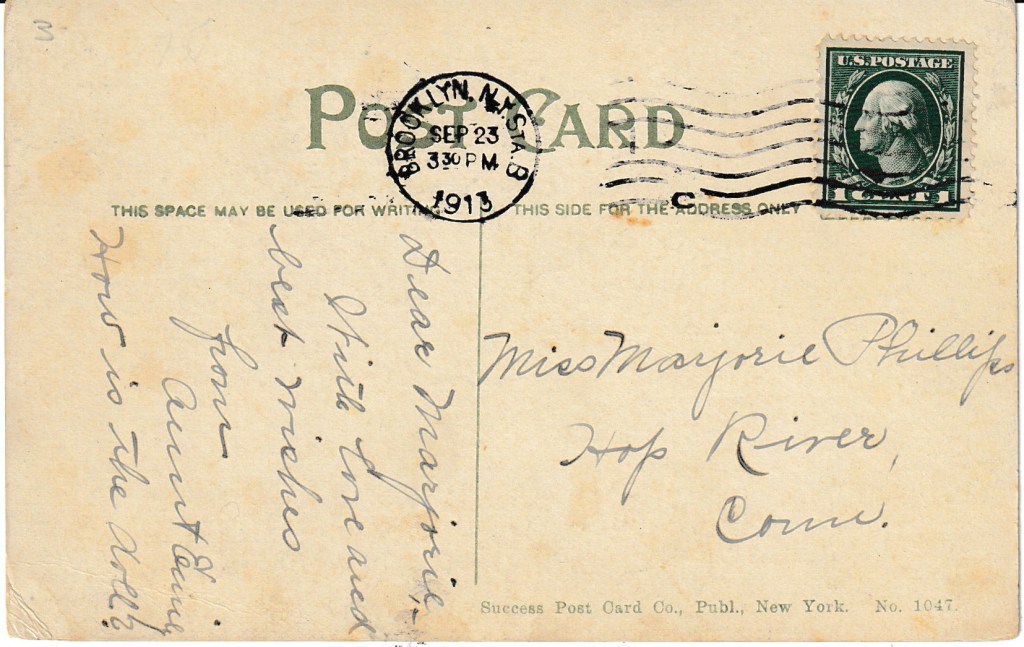 POST CARD
BROOKLYN, N.Y. STA. B
SEP 23
3 30 PM
1913
C
U.S. POSTAGE
1 CENT 1
THIS SPACE MAY BE USED FOR WRITING
THIS SIDE FOR THE ADDRESS ONLY
Dear Marjorie,-
With love and
best wishes
from
Aunt
How is the doll?
Miss Marjorie Phillips
Hop River,
Conn.
Success Post Card Co., Publ., New York. No. 1047.